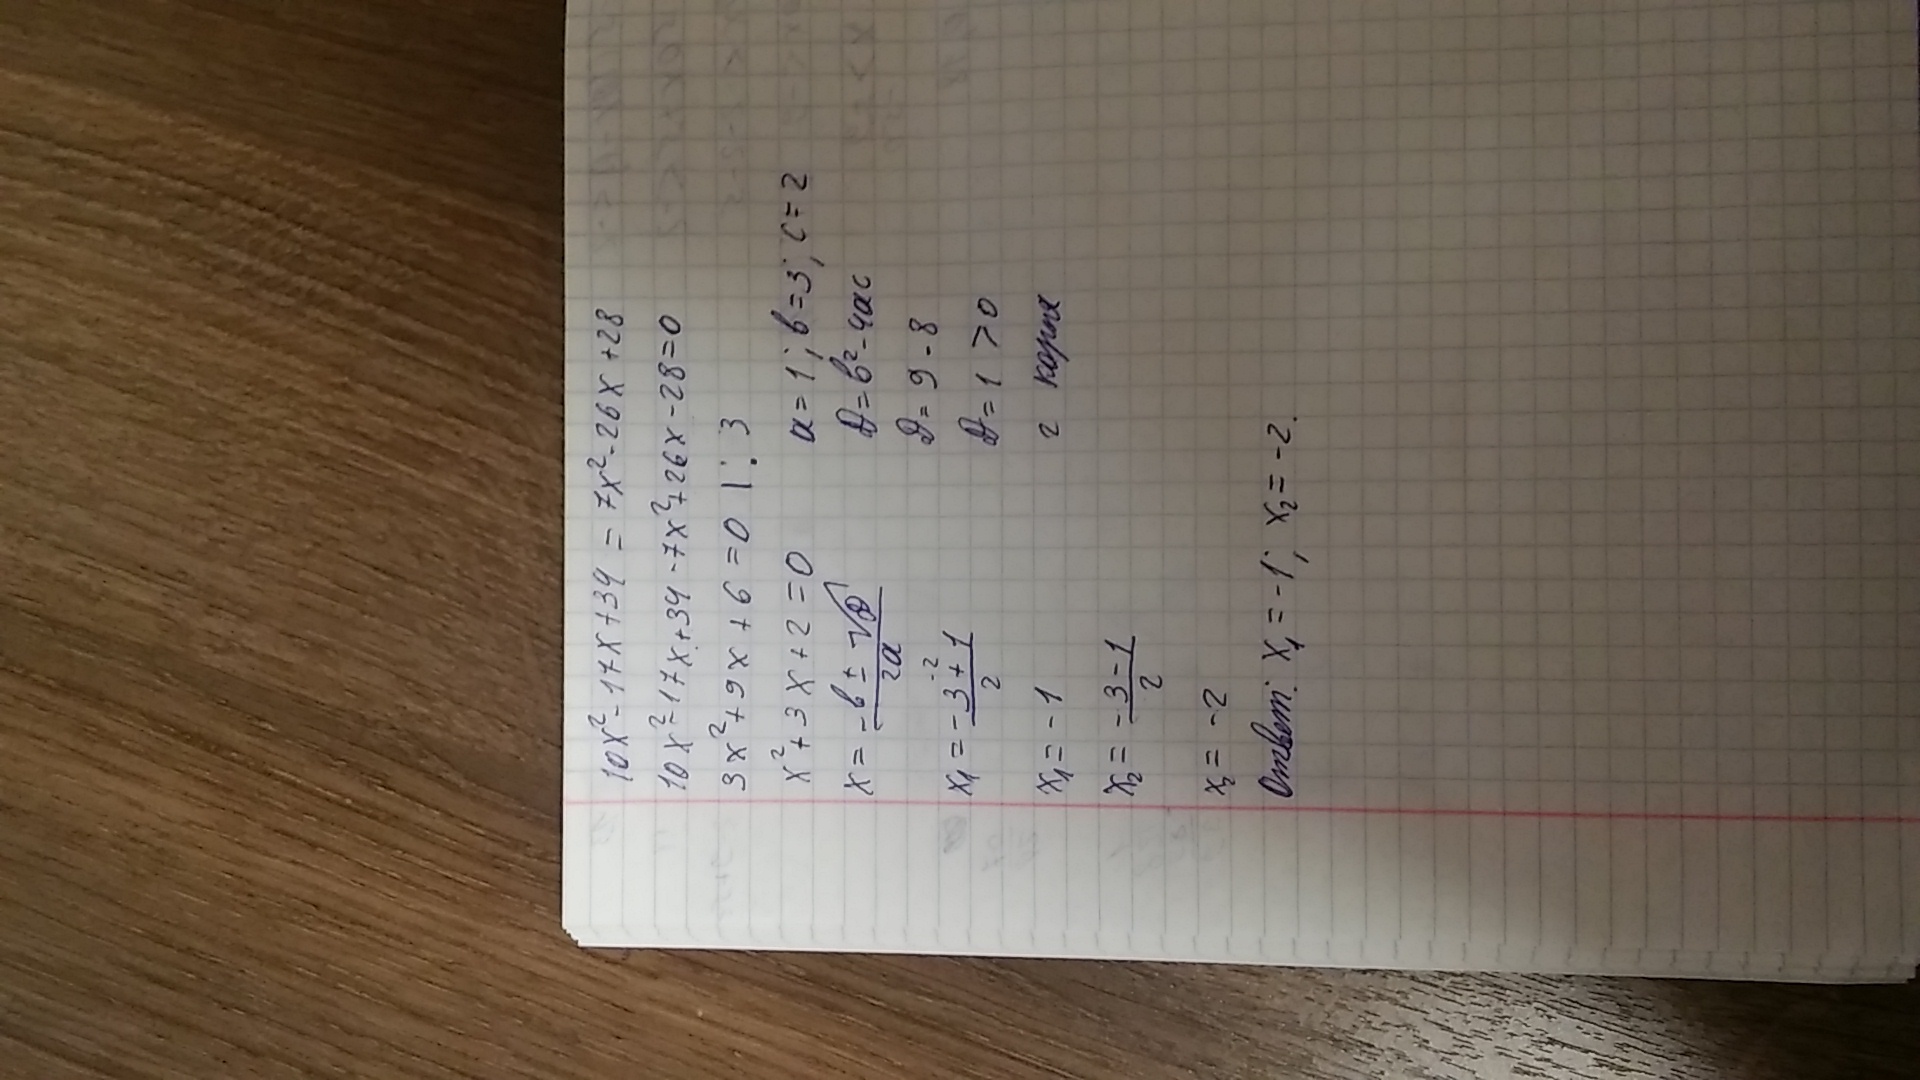 10x² - 17x + 34 = 7x² - 26x + 28
10x² - 17x + 34 - 7x² + 26x - 28 = 0
3x² + 9x + 6 = 0 | : 3
x² + 3x + 2 = 0
a = 1; b = 3; c = 2
x = -b ± √D / 2a
D = b² - 4ac
D = 9 - 8
x₁ = -3 + 1 / 2
-2
D = 1 > 0
x₁ = -1
2 корня
x₂ = -3 - 1 / 2
x₂ = -2
Ответ: x₁ = -1; x₂ = -2.